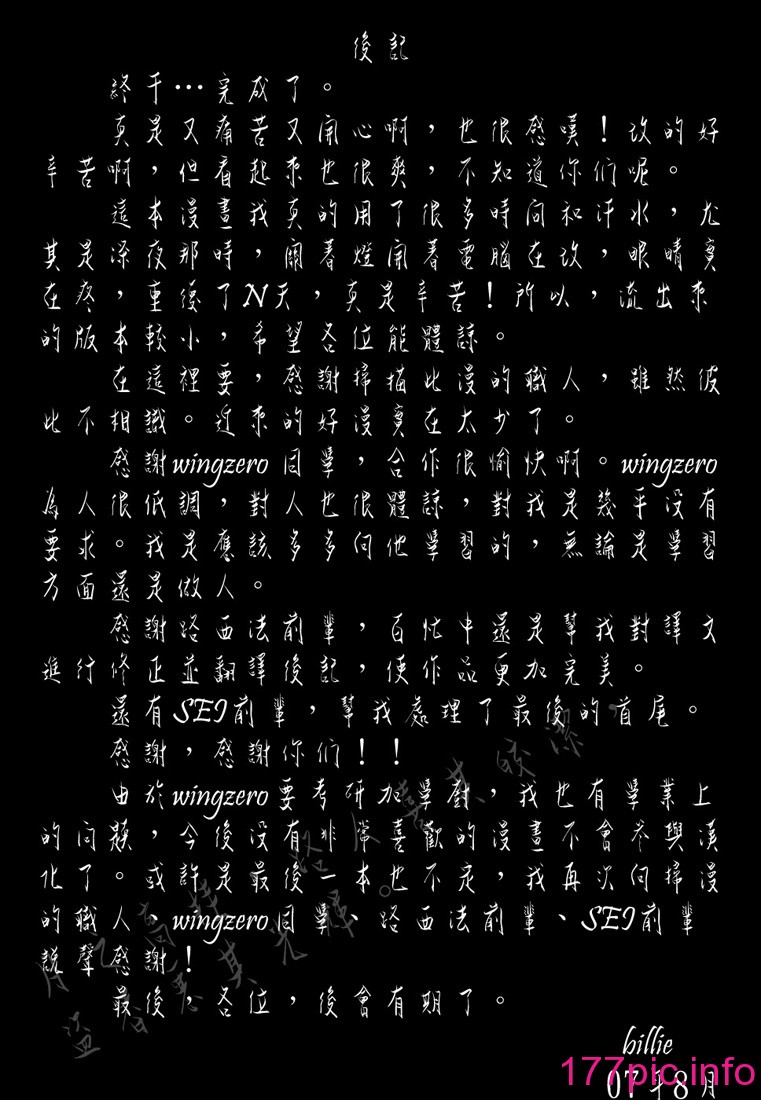 後記
終于…完成了。
真是又痛苦又開心啊，也很感嘆！改的好
辛苦啊，但看起來也很爽，不知道你们呢。
這本漫畫我真的用了很多時间和汗水，尤
其是深夜那時，關着燈開着電腦在改，眼睛實
在疼，重復了N天，真是辛苦！所以，流出來
的版本較小，希望各位能體諒。
在這裡要，感謝掃描此漫的職人，雖然彼
此不相識。近來的好漫實在太少了。
感謝wingzero同學，合作很愉快啊。wingzero
為人很低調，對人也很體諒，對我是幾乎没有
要求。我是應該多多向他學習的，無論是學習
方面還是做人。
感謝路西法前輩，百忙中還是幫我對譯文
進行修正並翻譯後記，使作品更加完美。
還有SEI前輩，幫我處理了最後的首尾。
感謝，感謝你们！！
由於wingzero要考研加學廚，我也有學業上
的问題，今後没有非常喜歡的漫畫不會参與漢
化了。或許是最後一本也不定，我再次向掃漫
的職人、wingzero同學、路西法前輩、SEI前輩
説聲感謝！
最後，各位，後會有期了。
billie
07年8月
177pic.info